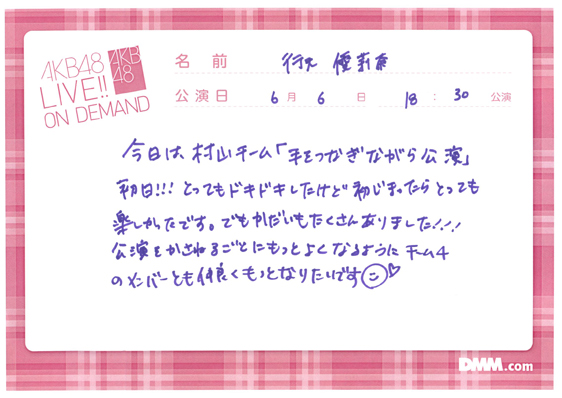 AKB48
LIVE!!
ON DEMAND
AKB
48
名前 行天 優莉奈
公演日 6月 6日 18:30 公演
今日は村山チーム「手をつなぎながら公演」
初日!!! とってもドキドキしたけど初じまったらとっても
楽しかったです。でもかだいもたくさんありました!!!
公演をかさねるごとにもっとよくなるように チーム4
のメンバーとも仲良くもっとなりたいです
DMM.com